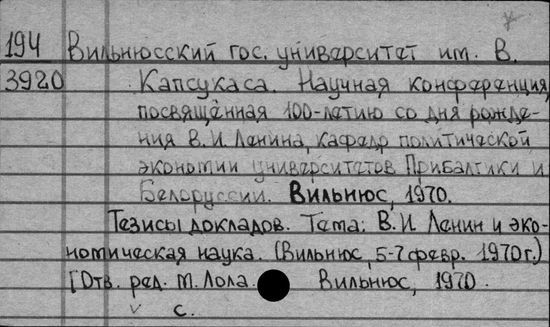 194 Вильнюсский гос. университет им. В.
3920 Капсукаса. Научная конференция,
посвящённая 100-летию со дня рожде-
ния В.И. Ленина, кафедр политической
экономии университетов Прибалтики и
Белоруссии. Вильнюс, 1970.
Тезисы докладов. Тема: В.И. Ленин и эко-
номическая наука. (Вильнюс, 5-7 февр. 1970г.)
[Отв. ред. М. Лола. Вильнюс, 1970.
с.